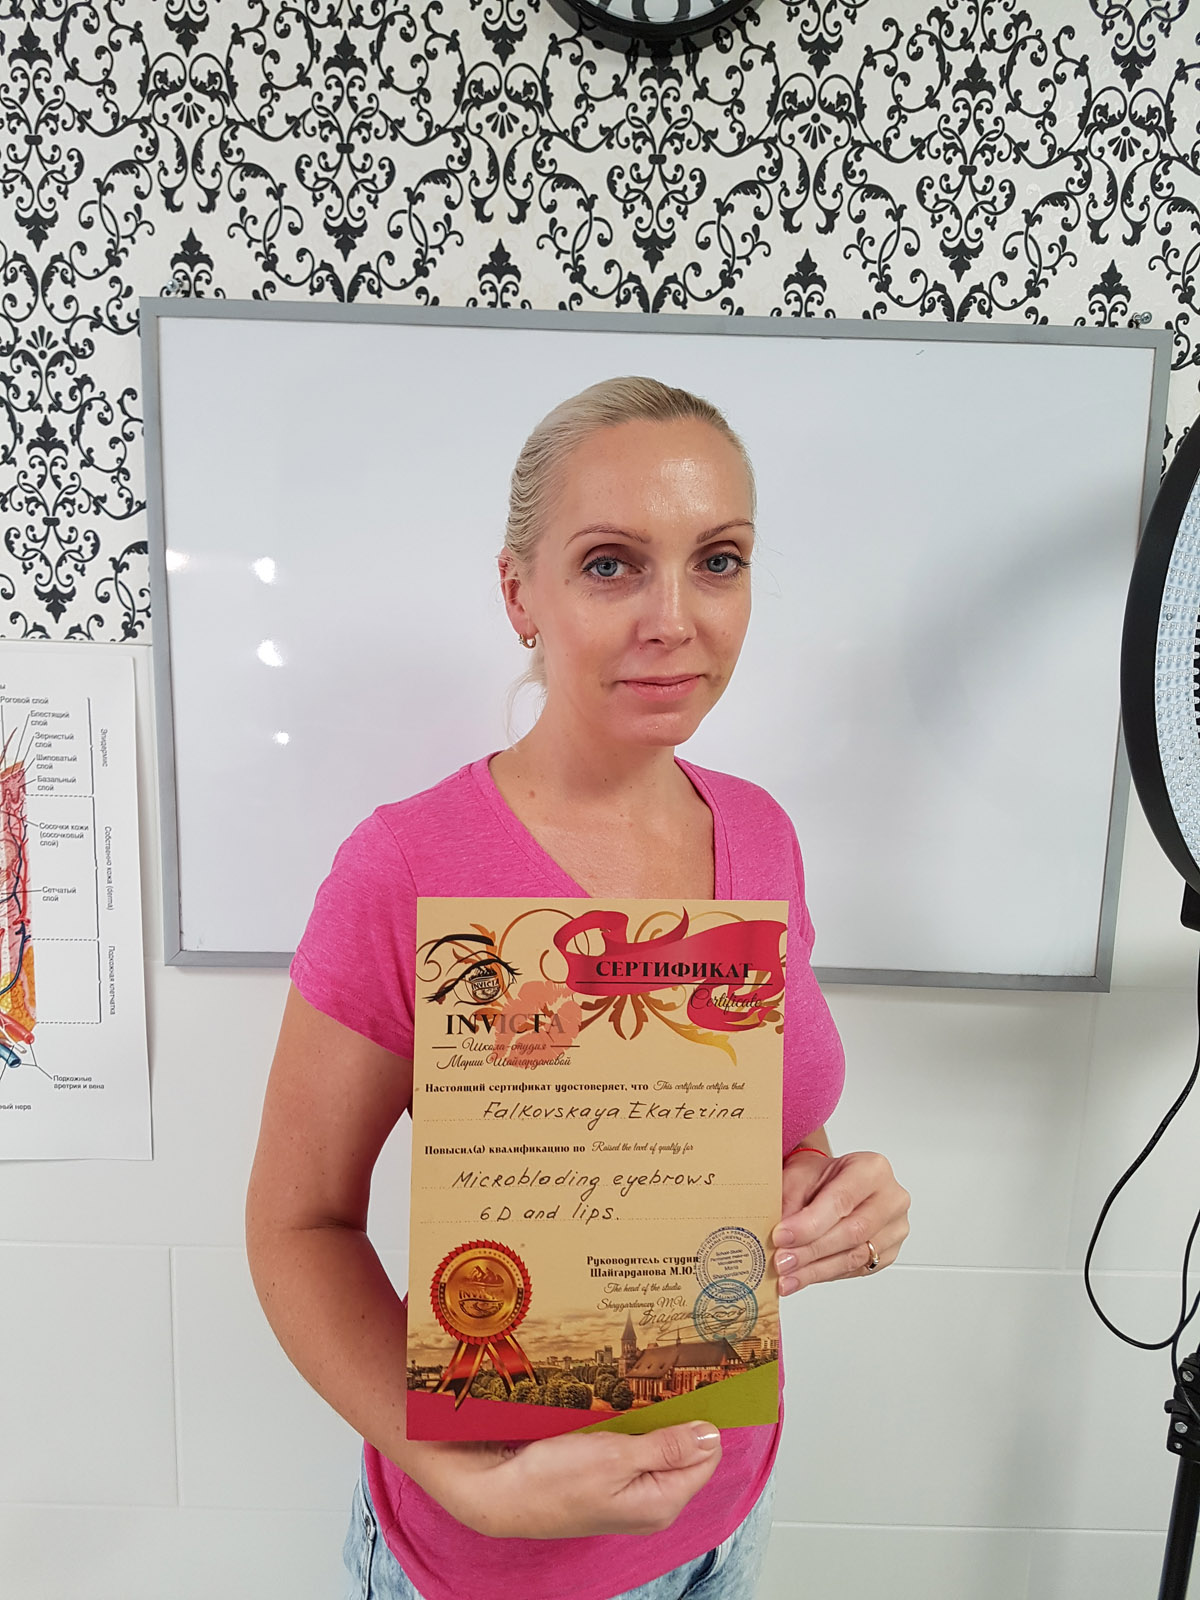 Роговой слой
Блестящий
слой
Зернистый
слой
Шиповатый
слой
Базальный
слой
Эпидермис
Сосочки кожи
(сосочковый
слой)
Собственно кожа (derma)
Сетчатый
слой
Подкожная клетчатка
Подкожные
артрия и вена
нерв
СЕРТИФИКАТ
Certificate
INVICTA
Школа-студия
Марии Шайгардановой
Настоящий сертификат удостоверяет, что This certificate certifies that
Falkovskaya Ekaterina
Повысил(а) квалификацию по Raised the level of qualify for
Microblading eyebrows
6D and lips.
Руководитель студии
Шайгарданова М.Ю.
The head of the studio
Shaygardanova M.U.
INVICTA